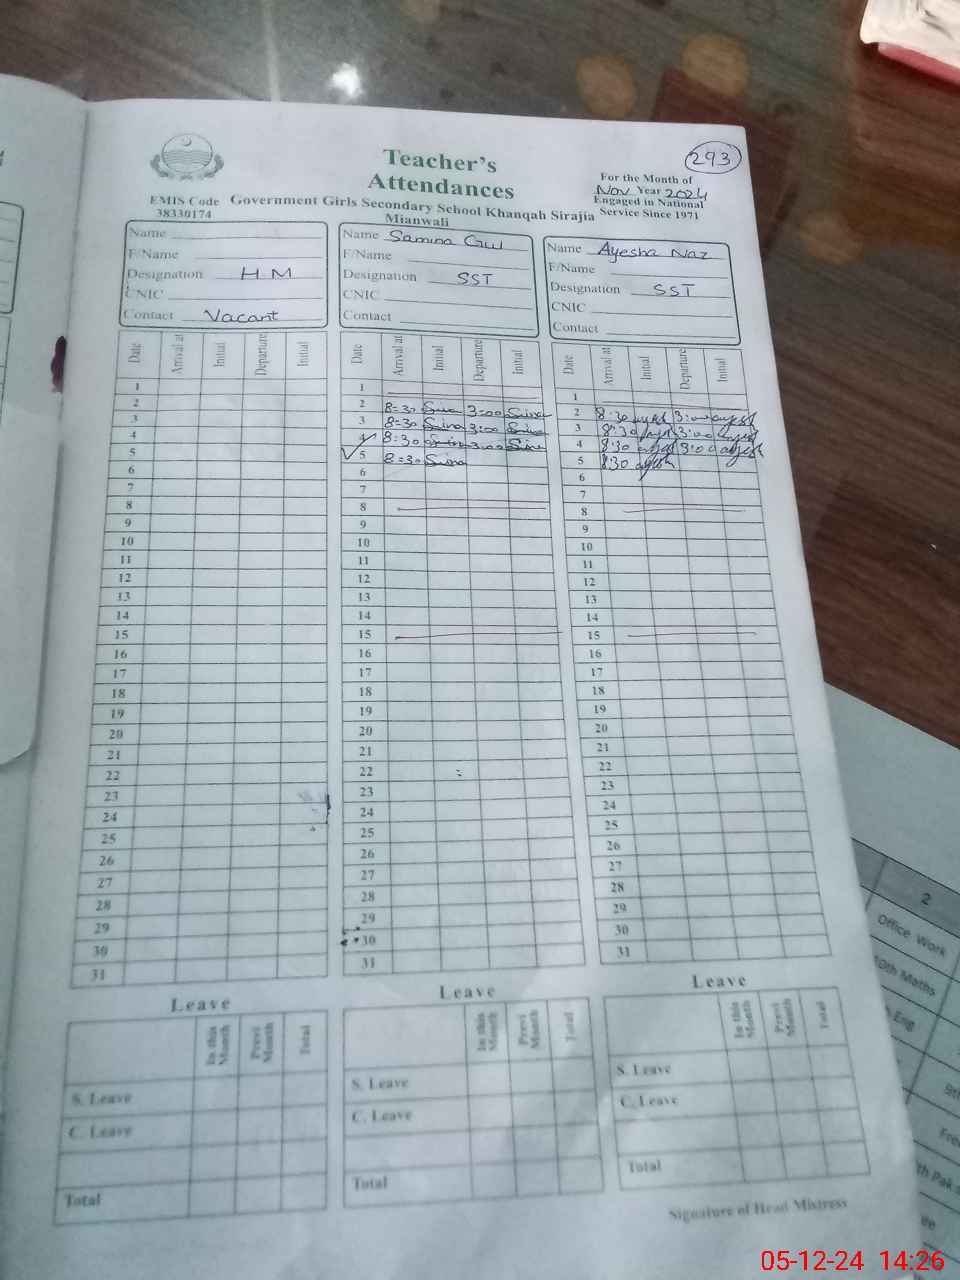 293
Teacher's
Attendances
For the Month of
Nov Year 2024
Engaged in National
Service Since 1971
EMIS Code
38330174
Government Girls Secondary School Khanqah Sirajia
Mianwali
Name
F/Name
Designation H M
CNIC
Contact Vacant
Name Samina Gul
F/Name
Designation SST
CNIC
Contact
Name Ayesha Naz
F/Name
Designation SST
CNIC
Contact
Date Arrival at Initial Departure Initial
1
2
3
4
5
6
7
8
9
10
11
12
13
14
15
16
17
18
19
20
21
22
23
24
25
26
27
28
29
30
31
Date Arrival at Initial Departure Initial
1
2 8=30 3:00
3 8=30 3:00
4 8:30 3:00
5 8=30
6
7
8
9
10
11
12
13
14
15
16
17
18
19
20
21
22
23
24
25
26
27
28
29
30
31
Date Arrival at Initial Departure Initial
1
2 8:30 3:00
3 8:30 3:00
4 8:30 3:00
5 8:30
6
7
8
9
10
11
12
13
14
15
16
17
18
19
20
21
22
23
24
25
26
27
28
29
30
31
Leave
In this Month Previ Month Total
S. Leave
C. Leave
Total
Leave
In this Month Previ Month Total
S. Leave
C. Leave
Total
Leave
In this Month Previ Month Total
S. Leave
C. Leave
Total
Signature of Head Mistress
2
Office Work
10th Maths
Eng
05-12-24 14:26